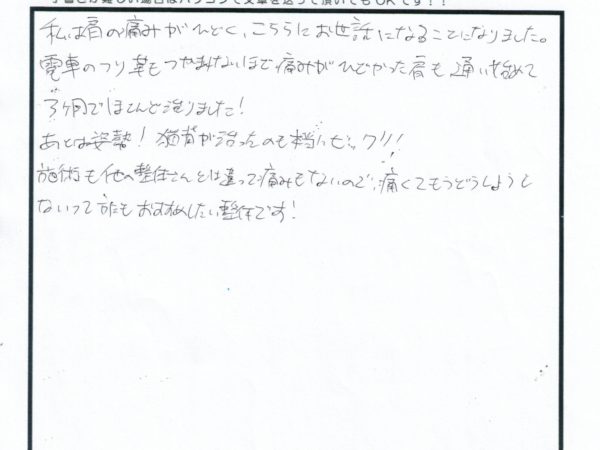 手書きが難しい場合はパソコンで文章を送って頂いてもOKです！！
私は肩の痛みがひどく、こちらにお世話になることになりました。
電車のつり革もつかめないほど痛みがひどかった肩も通い始めて
3ヶ月でほとんど治りました！
あとは姿勢！猫背が治ったのも本当にビックリ！！
施術も他の整体さんとは違って痛みもないので、痛くてもうどうしようも
ないって方にもおすすめしたい整体です！